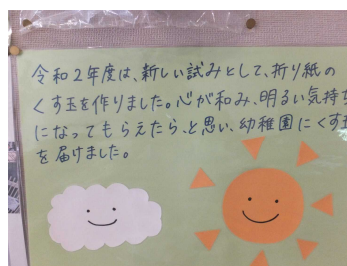 令和2年度は、新しい試みとして、折り紙の
くす玉を作りました。心が和み、明るい気持ち
になってもらえたら、と思い、幼稚園にくす玉
を届けました。